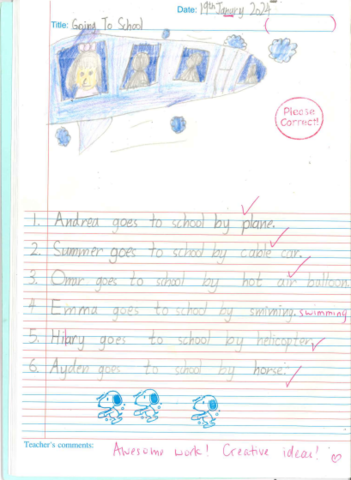 Date: 19th January 2024
Title: Going To School
Please
Correct!
1. Andrea goes to school by plane.
2. Summer goes to school by cable car.
3. Omar goes to school by hot air balloon.
4 Emma goes to school by smiming. swimming
5. Hilary goes to school by helicopter.
6. Ayden goes to school by horse.
Teacher's comments: Awesome work! Creative ideas!